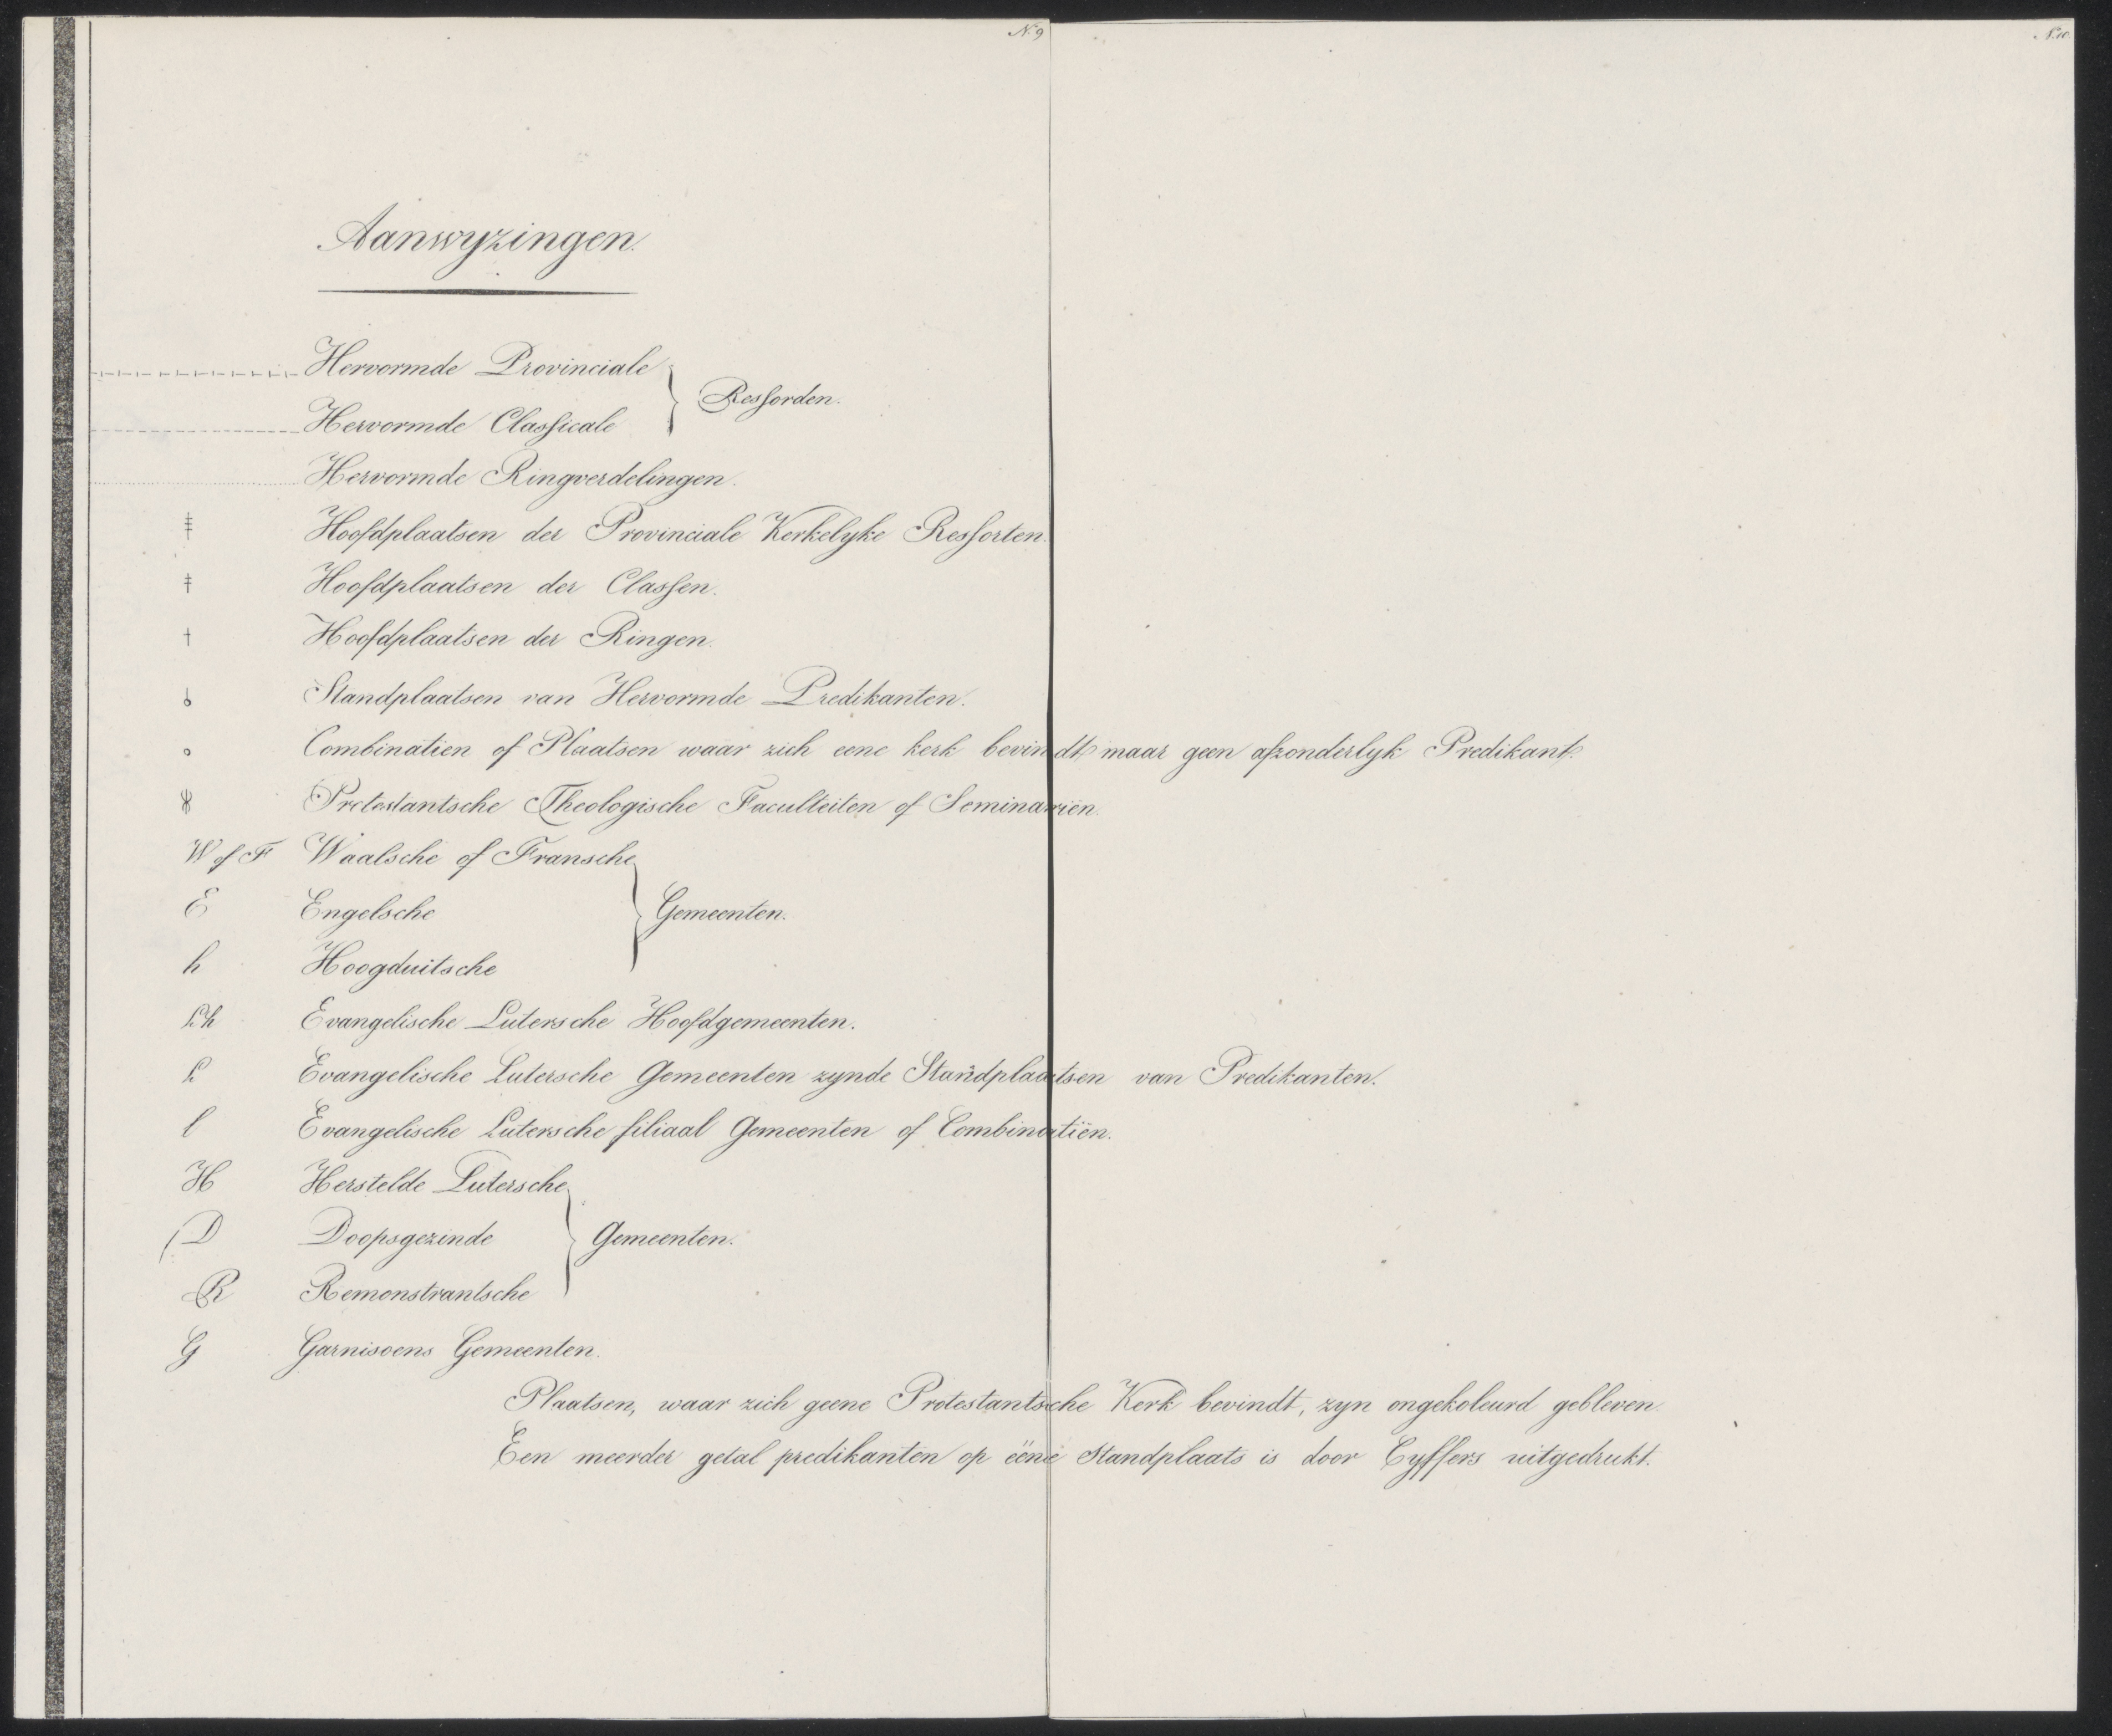 N. 9
N. 10
Aanwyzingen.
Hervormde Provinciale
Hervormde Classicale
Ressorden.
Hervormde Ringverdelingen.
Hoofdplaatsen der Provinciale Kerkelyke Ressorten.
Hoofdplaatsen der Classen.
Hoofdplaatsen der Ringen.
Standplaatsen van Hervormde Predikanten.
Combinatien of Plaatsen waar zich eene kerk bevindt maar geen afzonderlyk Predikant.
Protestantsche Theologische Faculteiten of Seminariën.
W of F Waalsche of Fransche
E Engelsche
Gemeenten.
h Hoogduitsche
Lh Evangelische Lutersche Hoofdgemeenten.
L Evangelische Lutersche Gemeenten zynde Standplaatsen van Predikanten.
l Evangelische Lutersche filiaal Gemeenten of Combinatiën.
H Herstelde Lutersche
D Doopsgezinde
Gemeenten.
R Remonstrantsche
G Garnisoens Gemeenten.
Plaatsen, waar zich geene Protestantsche Kerk bevindt, zyn ongekoleurd gebleven.
Een meerder getal predikanten op ëëne Standplaats is door Cyffers uitgedrukt.